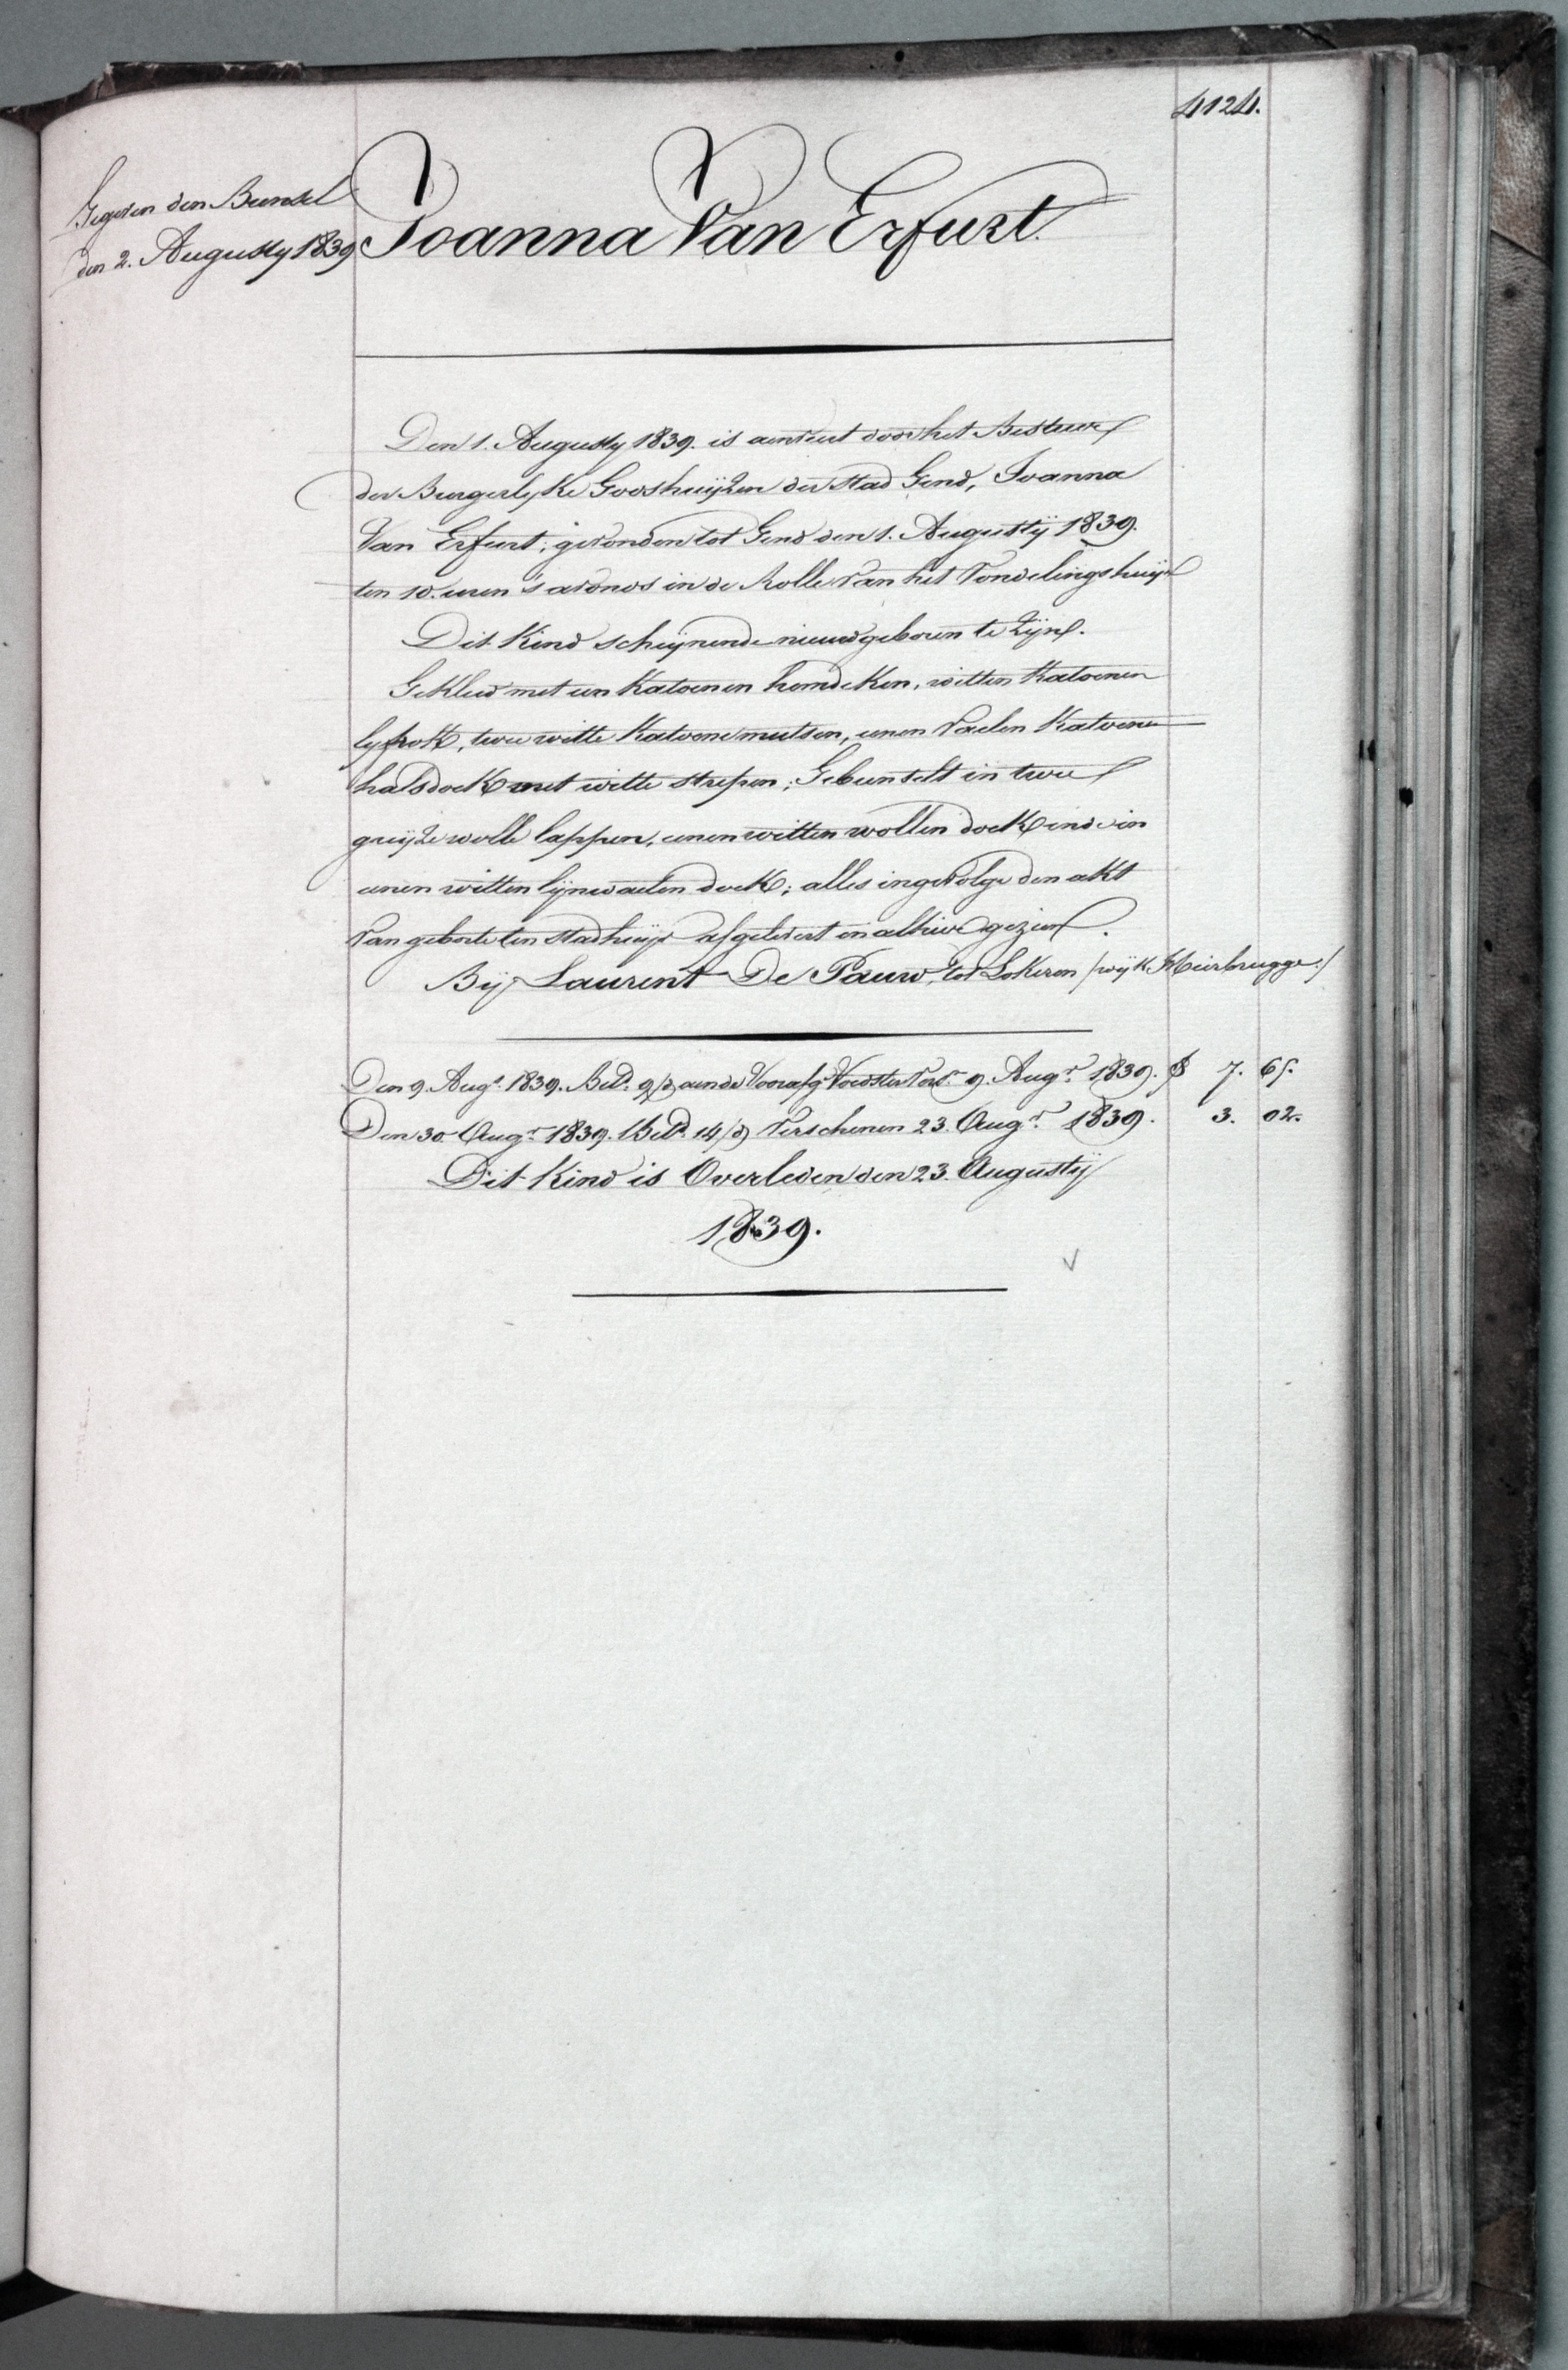 4124.
Gegeven den Bunsel
den 2. Augusty 1839
Joanna Van Erfurt.
Den 1. Augusty 1839. is aenveert door het Bestuur
der Burgerlyke Godshuijzen der stad Gend, Joanna
Van Erfurt; gevonden tot Gend den 1. Augustij 1839.
ten 10. uren 's avonds in de Rolle van het Vondelingshuijs
Dit Kind schijnende nieuwgeboren te Zijn.
Gekleed met een Katoenen hemdeken, witten Katoenen
lyfrok, twee witte Katoene mutsen, eenen vaelen Katoenen
halsdoek met witte strepen; Gebunselt in twee
grijze wolle lappen, eenen witten wollen doek ende in
eenen witten lijnwaeten doek; alles ingevolge den akt
van geboorte ten stadhuijs afgelevert en alhier gezien.
Bij Laurent De Pauw, tot Lokeren /wijk Heirbrugge:/
Den 9. Augt. 1839. Betd. 9/d aen de Voorafg. Voedster Vers. 9. Augt. 1839. 7. 65.
Den 30 Augt. 1839. Betd. 14/d Verschenen 23. Augt. 1839. 3. 02.
Dit Kind is Overleden den 23. Augustij
1839.